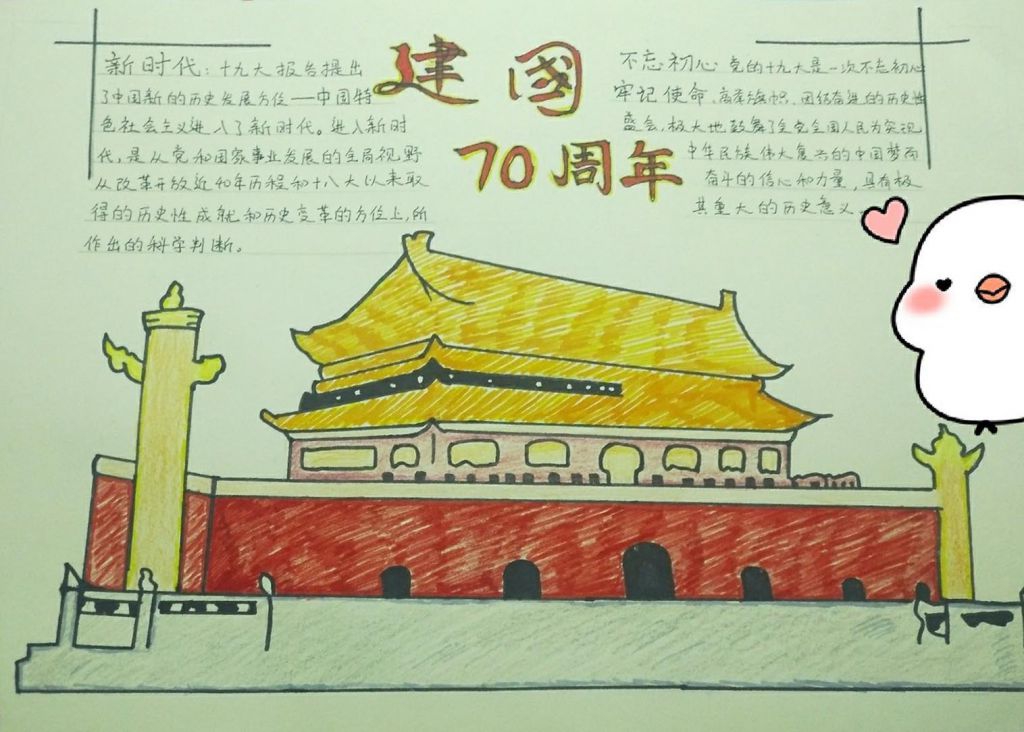 建國
70周年
新时代:十九大报告提出
了中国新的历史发展方位——中国特
色社会主义进入了新时代。进入新时
代,是从党和国家事业发展的全局视野
从改革开放近40年历程和十八大以来取
得的历史性成就和历史变革的方位上,所
作出的科学判断。
不忘初心 党的十九大是一次不忘初心
牢记使命、高举旗帜、团结奋进的历史性
盛会,极大地鼓舞了全党全国人民为实现
中华民族伟大复兴的中国梦而
奋斗的信心和力量,具有极
其重大的历史意义